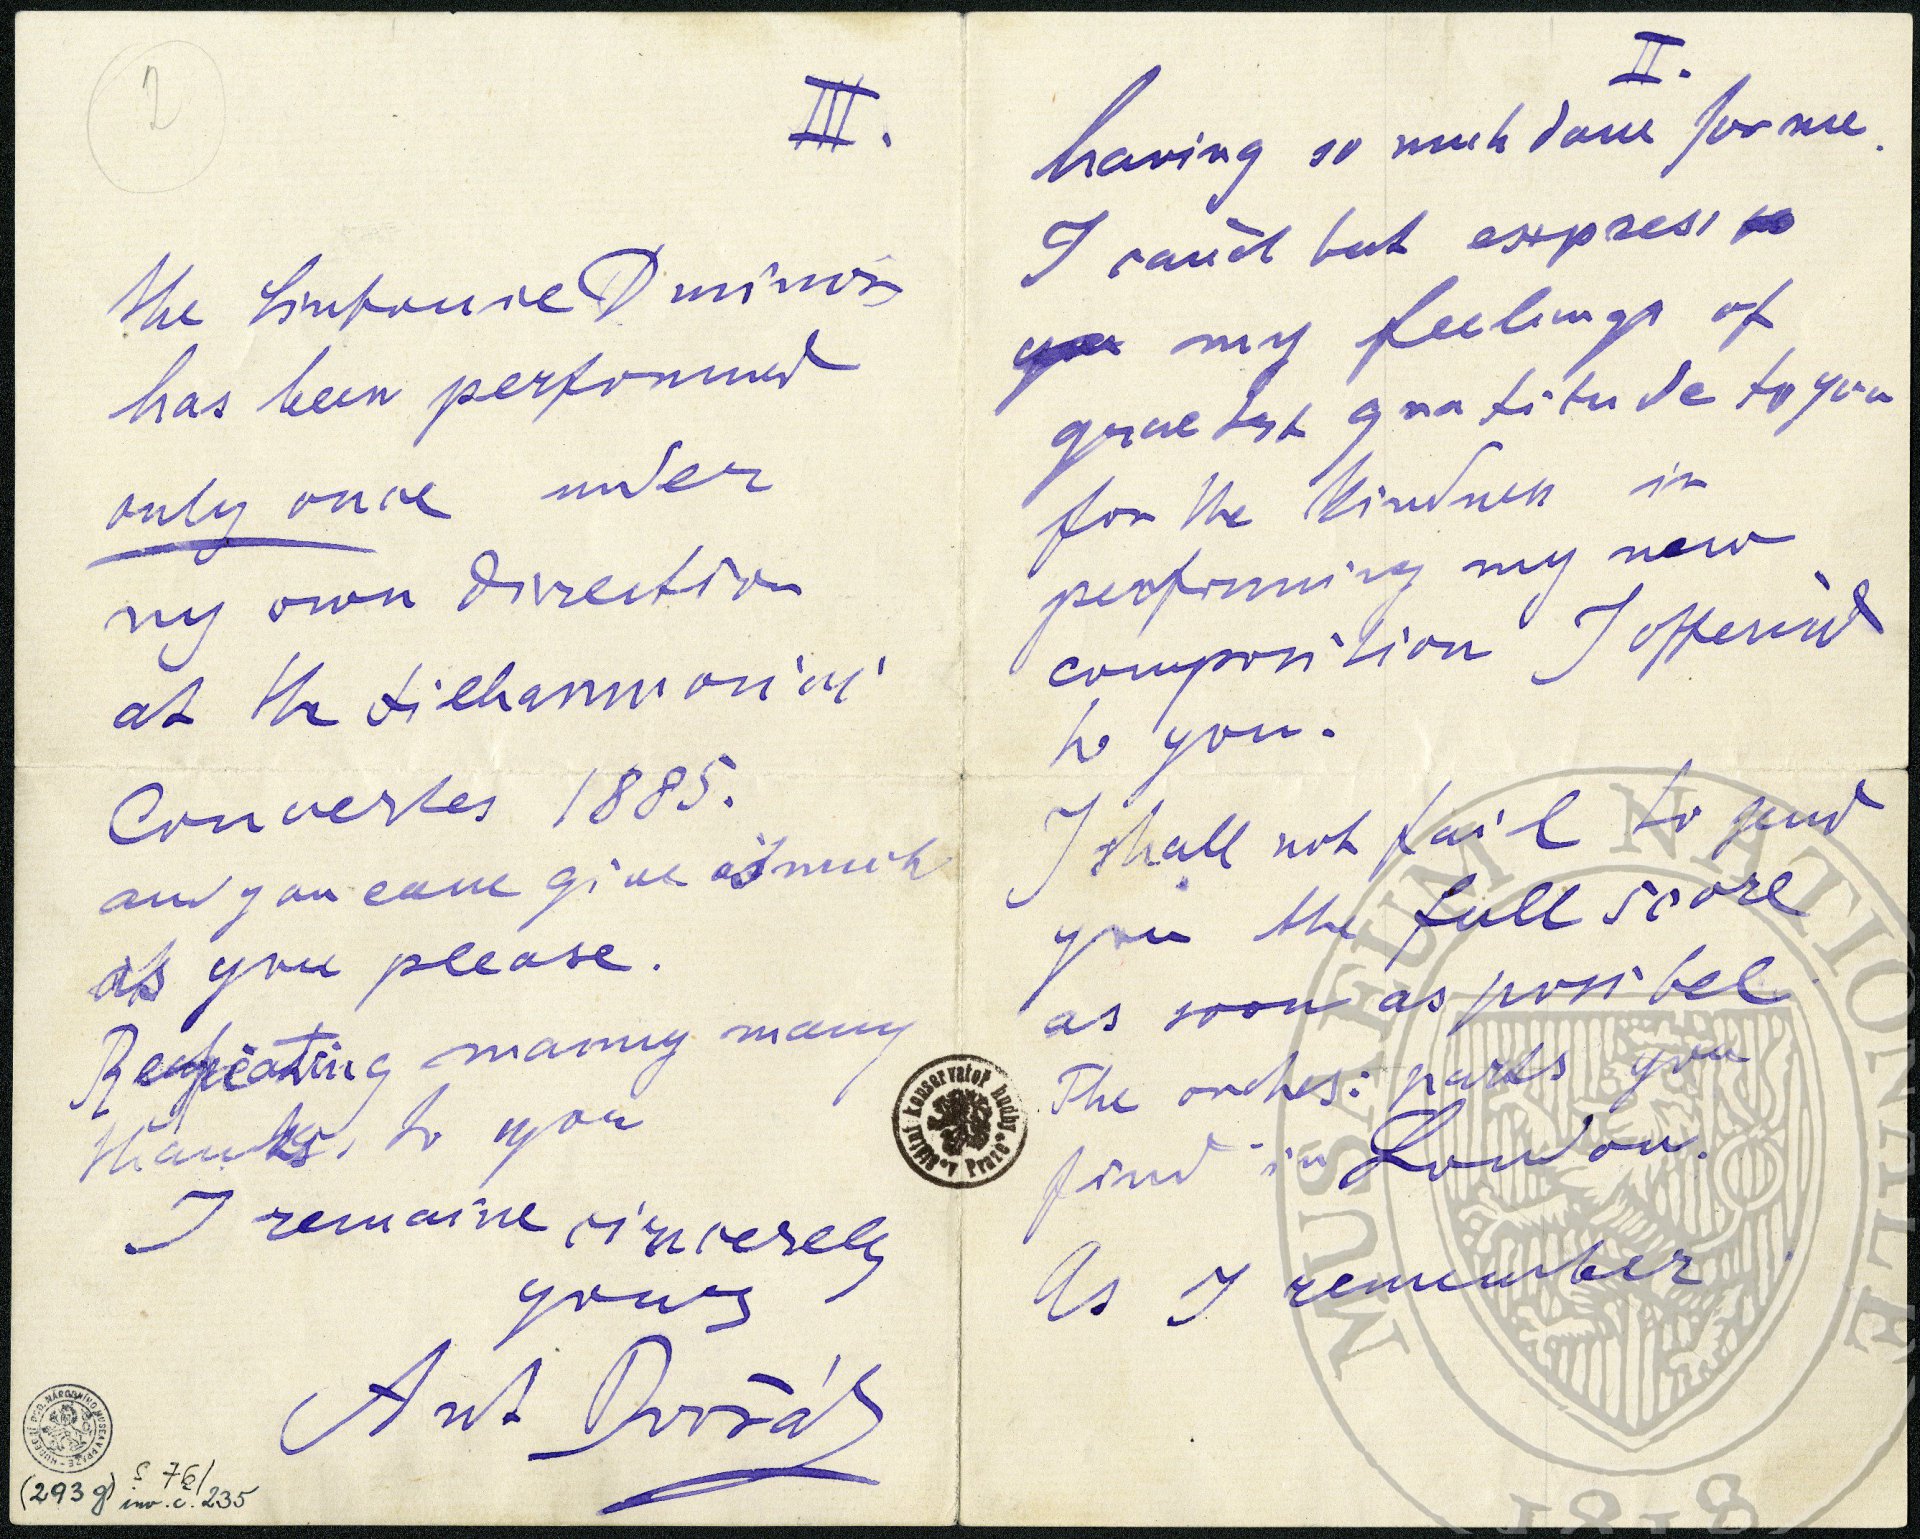 II.
having so much done for me.
I can't but express
my feelings of
graetest gratitude to you
for the kindness in
performing my new
composition I offered
to you.
I shall not fail to send
you the full score
as soon as possibel
The orches: parts you
find in London.
As I remember
2
III.
the Sinfonie D minor
has been performed
only once under
my own direction
at the filharmonics
Concertes 1885.
and you cane give as much
as you please.
Repeating manny many
thanks, to you
I remaine sincerely
yours
Ant Dvořák
Státní konservatoř hudby v Praze
(293 g) č 76/
inv. č. 235
MUSAEUM NATIONALE
1818